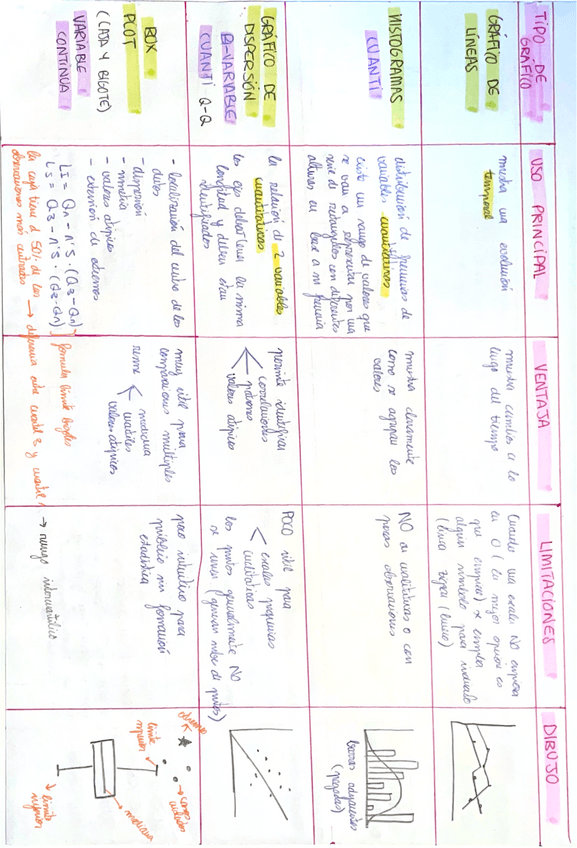 TIPO DE GRÁFICO
USO PRINCIPAL
VENTAJA
LIMITACIONES
DIBUJO
GRÁFICO DE LÍNEAS
muestra una evolución
temporal
muestra cambios a lo
largo del tiempo
Cuando una escala NO empieza
en 0 (la mejor opción es
que empiece) se emplea
algún símbolo para indicarlo
HISTOGRAMAS
CUANTI
distribución de frecuencias de
variables cuantitativas
existe un rango de valores que
se van a representar por una
serie de rectángulos con diferentes
alturas en base a su frecuencia
muestra claramente
como se agrupan los
valores
NO en cualitativas o con
pocas observaciones
barras adyacentes
(pegadas)
GRÁFICO DE
DISPERSIÓN
BI-VARIABLE
CUANTI Q-Q
la relación de 2 variables
cuantitativas
los ejes deben tener la misma
longitud y deben estar
identificados
permite identificar
correlaciones
patrones
valores atípicos
POCO útil para
escalas pequeñas
cualitativas
los puntos generalmente NO
se unen (generan nube de puntos)
BOX
PLOT
(CAJA Y BIGOTE)
VARIABLE
CONTINUA
- localización del centro de los
datos
- dispersión
- simetría
- valores atípicos
- extensión de extremos
LI = Q1 - 1'5 · (Q3 - Q1)
LS = Q3 - 1'5 · (Q3 - Q1)
fórmula límite bigotes
la caja tiene el 50% de las
observaciones más centradas
→ diferencia entre cuartil 3 y cuartil 1 → rango intercuartílico
muy útil para
comparaciones múltiples
resume
mediana
cuartiles
valores atípicos
poco intuitivo para
público sin formación
estadística
extremo
límite
superior
mediana
límite
inferior